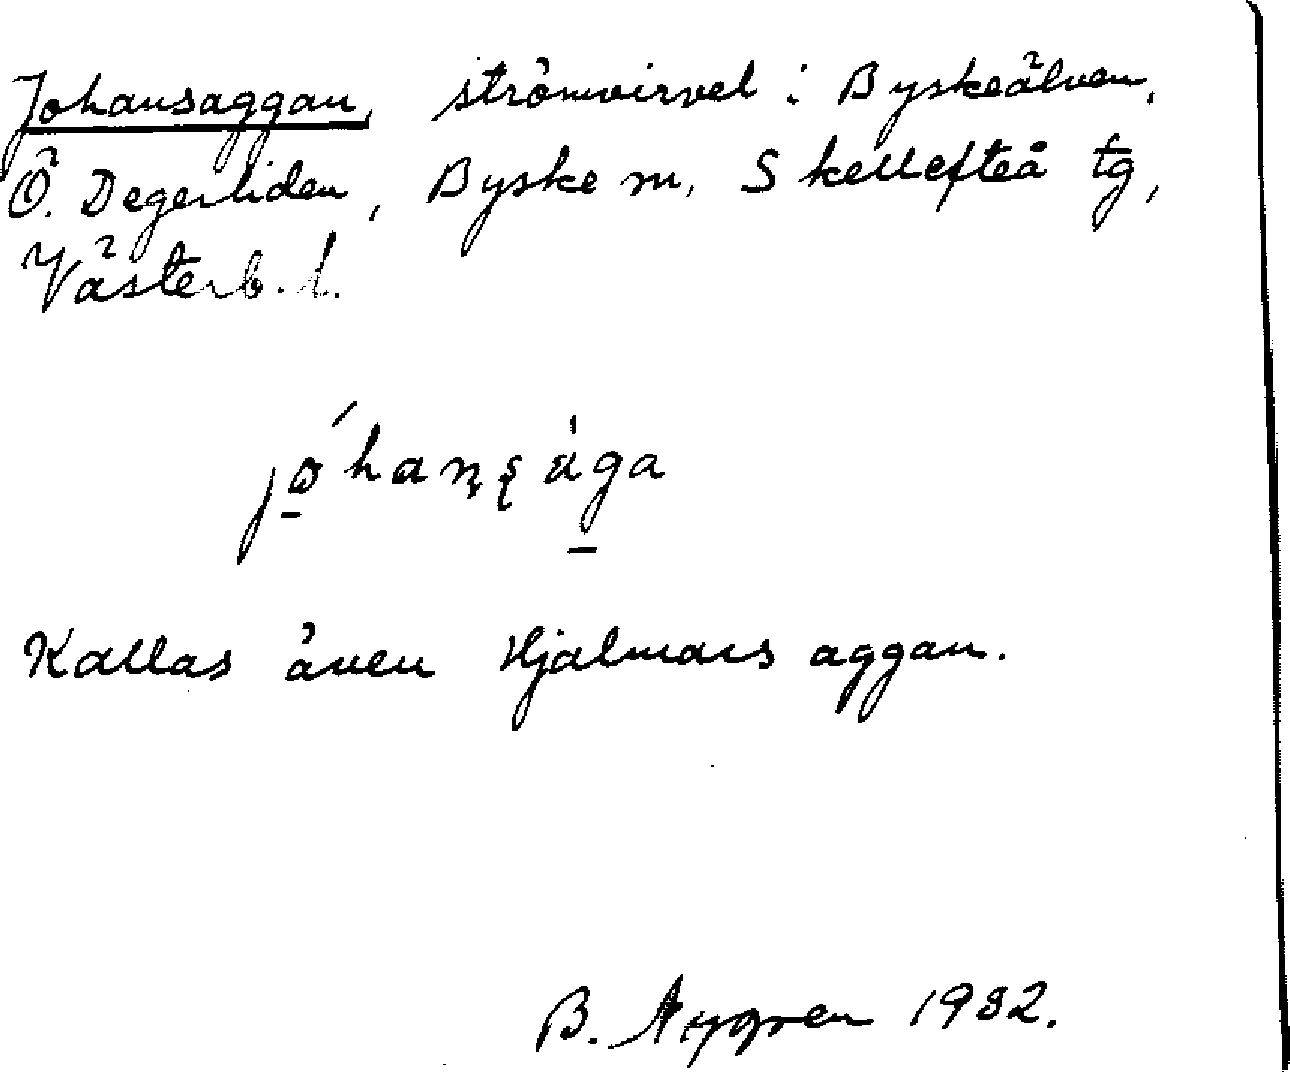 Johansaggan, strömvirvel i Byskeälven,
Ö. Degerliden, Byske sn, Skellefteå tg,
Västerb. l.
jo̱ ́hanşàga̱
Kallas även Hjalmars aggan.
B. Nygren 1932.